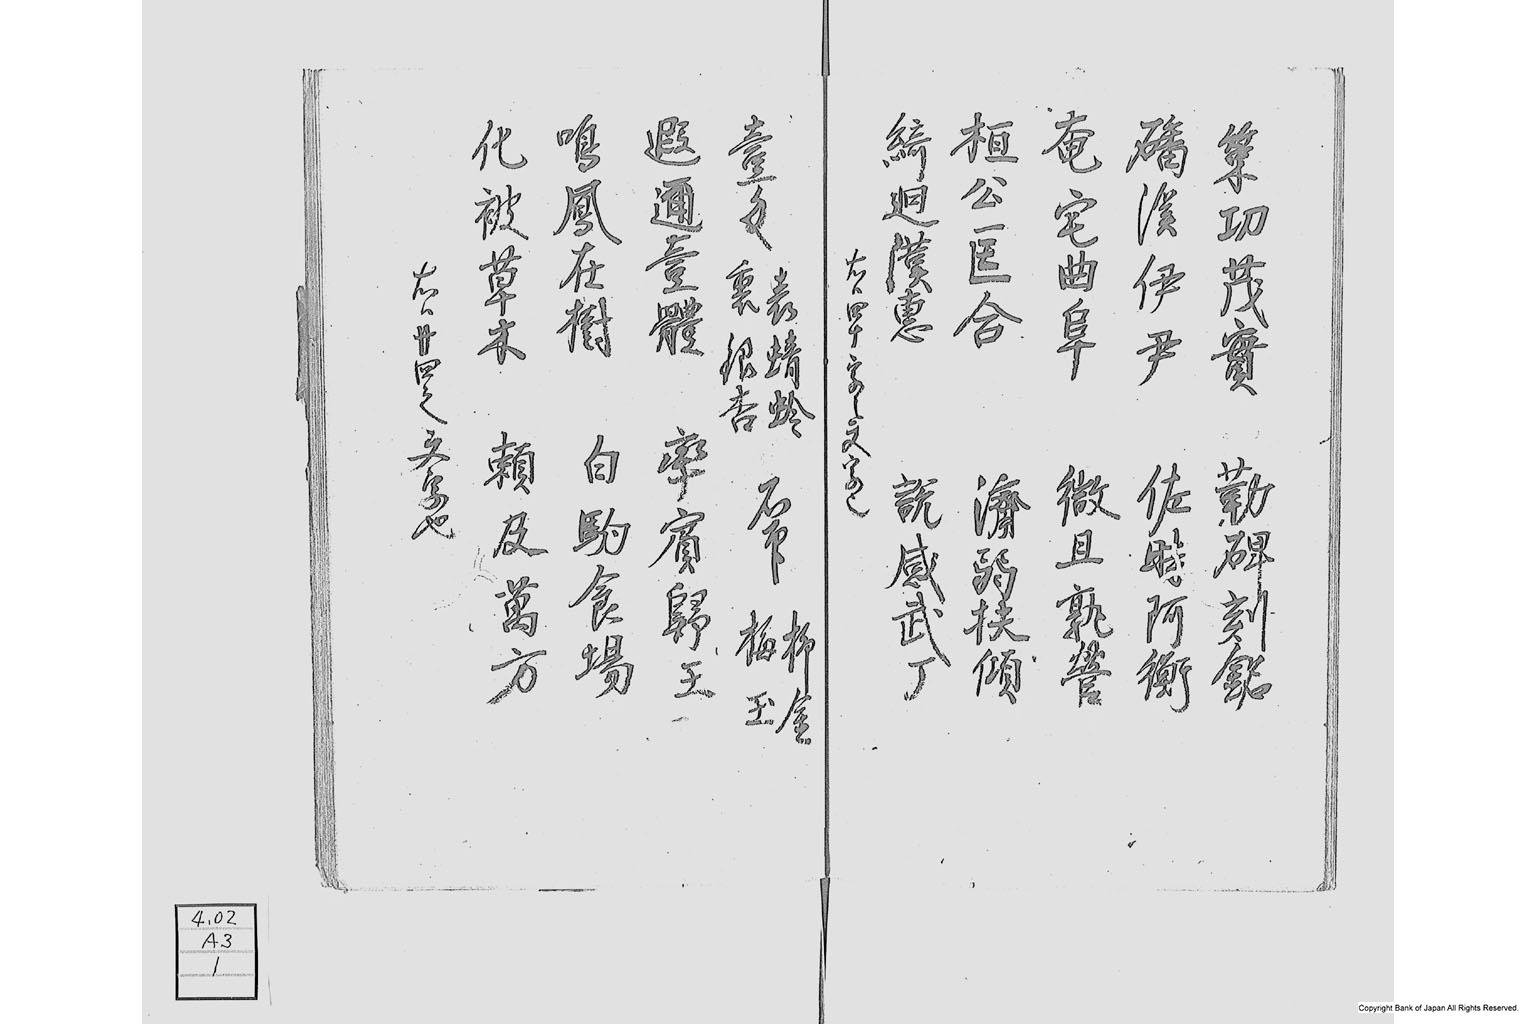 策功茂實　勒碑刻銘
磻溪伊尹　佐時阿衡
奄宅曲阜　微旦孰營
桓公匡合　濟弱扶傾
綺迴漢惠　說感武丁
右ハ四十字之文字也
壹匁 表蜻蛉 裏銀杏 石中 柳金 梅玉
遐邇壹體　率賓歸王
鳴鳳在樹　白駒食場
化被草木　賴及萬方
右ハ廿四之文字也
4.02
A3
1
Copyright Bank of Japan All Rights Reserved.